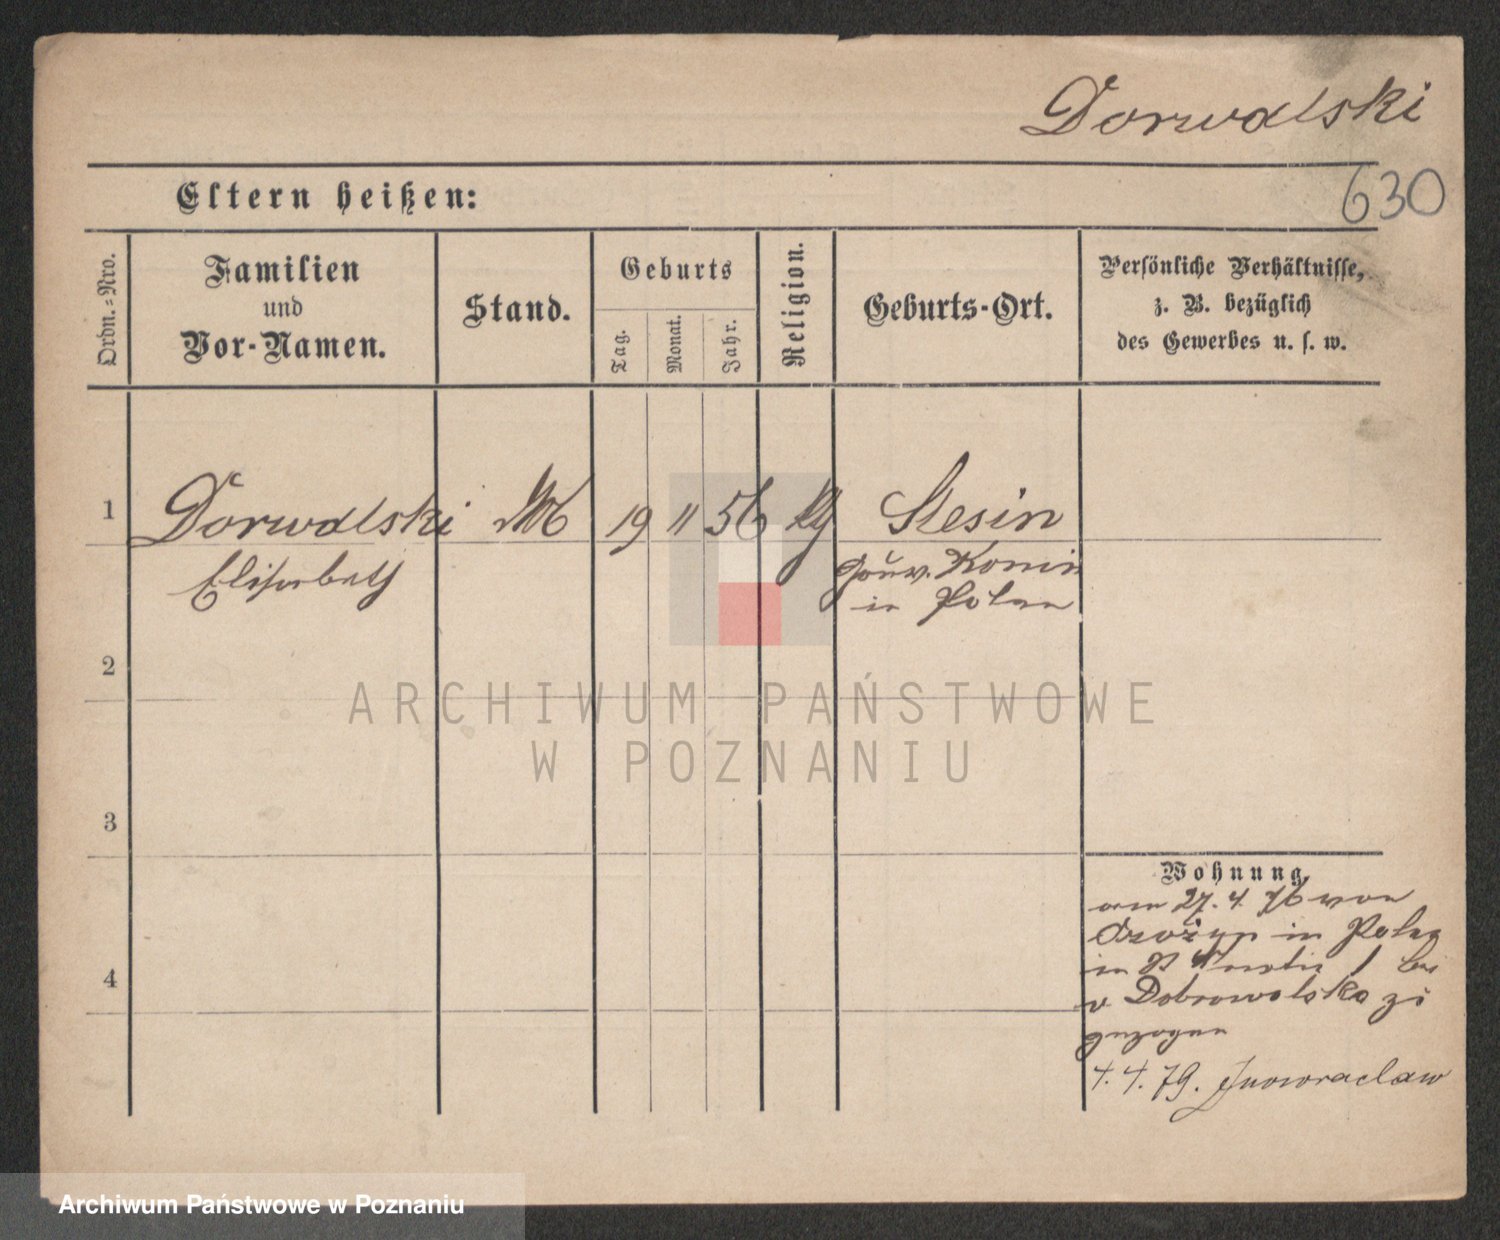 Dorwalski
Eltern heißen:
630
Ordn.-Nro.
Familien
und
Vor-Namen.
Stand.
Geburts
Tag.
Monat.
Jahr.
Religion.
Geburts-Ort.
Persönliche Verhältnisse,
z. B. bezüglich
des Gewerbes u. s. w.
1 Dorwalski 19 11 56 Slesin
Elisabeth Gouv. Konin
in Polen
2
3
4
Wohnung.
am 27. 4. 76 von
in Polen
in 1 bei
v Dobrowolska zu
gezogen
4. 4. 79. Inowraclaw
ARCHIWUM PAŃSTWOWE
W POZNANIU
Archiwum Państwowe w Poznaniu